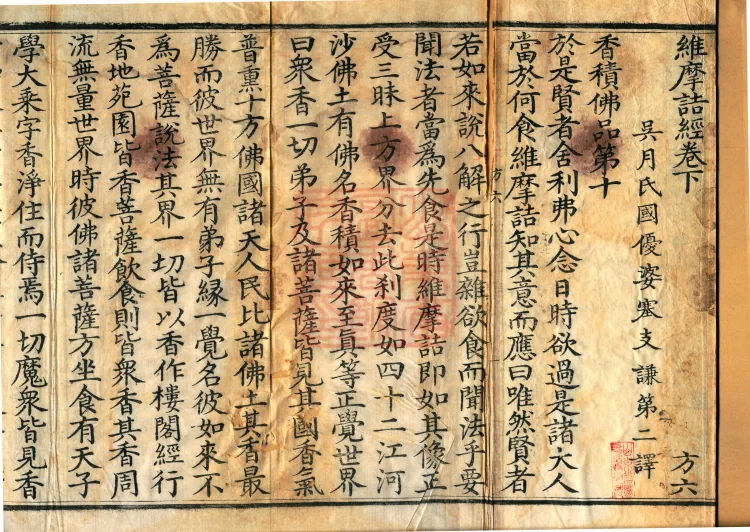 維摩詰經卷下 方六
吳月氏國優婆塞支謙第二譯
香積佛品第十
於是賢者舍利弗心念日時欲過是諸大人
當於何食維摩詰知其意而應曰唯然賢者
方六
若如來說八解之行豈雜欲食而聞法乎要
聞法者當為先食是時維摩詰即如其像正
受三昧上方界分去此剎度如四十二江河
沙佛土有佛名香積如來至真等正覺世界
曰眾香一切弟子及諸菩薩皆見其國香氣
普熏十方佛國諸天人民比諸佛土其香最
勝而彼世界無有弟子緣一覺名彼如來不
為菩薩說法其界一切皆以香作樓閣經行
香地苑園皆香菩薩飲食則皆眾香其香周
流無量世界時彼佛諸菩薩方坐食有天子
學大乘字香淨住而侍焉一切魔眾皆見香